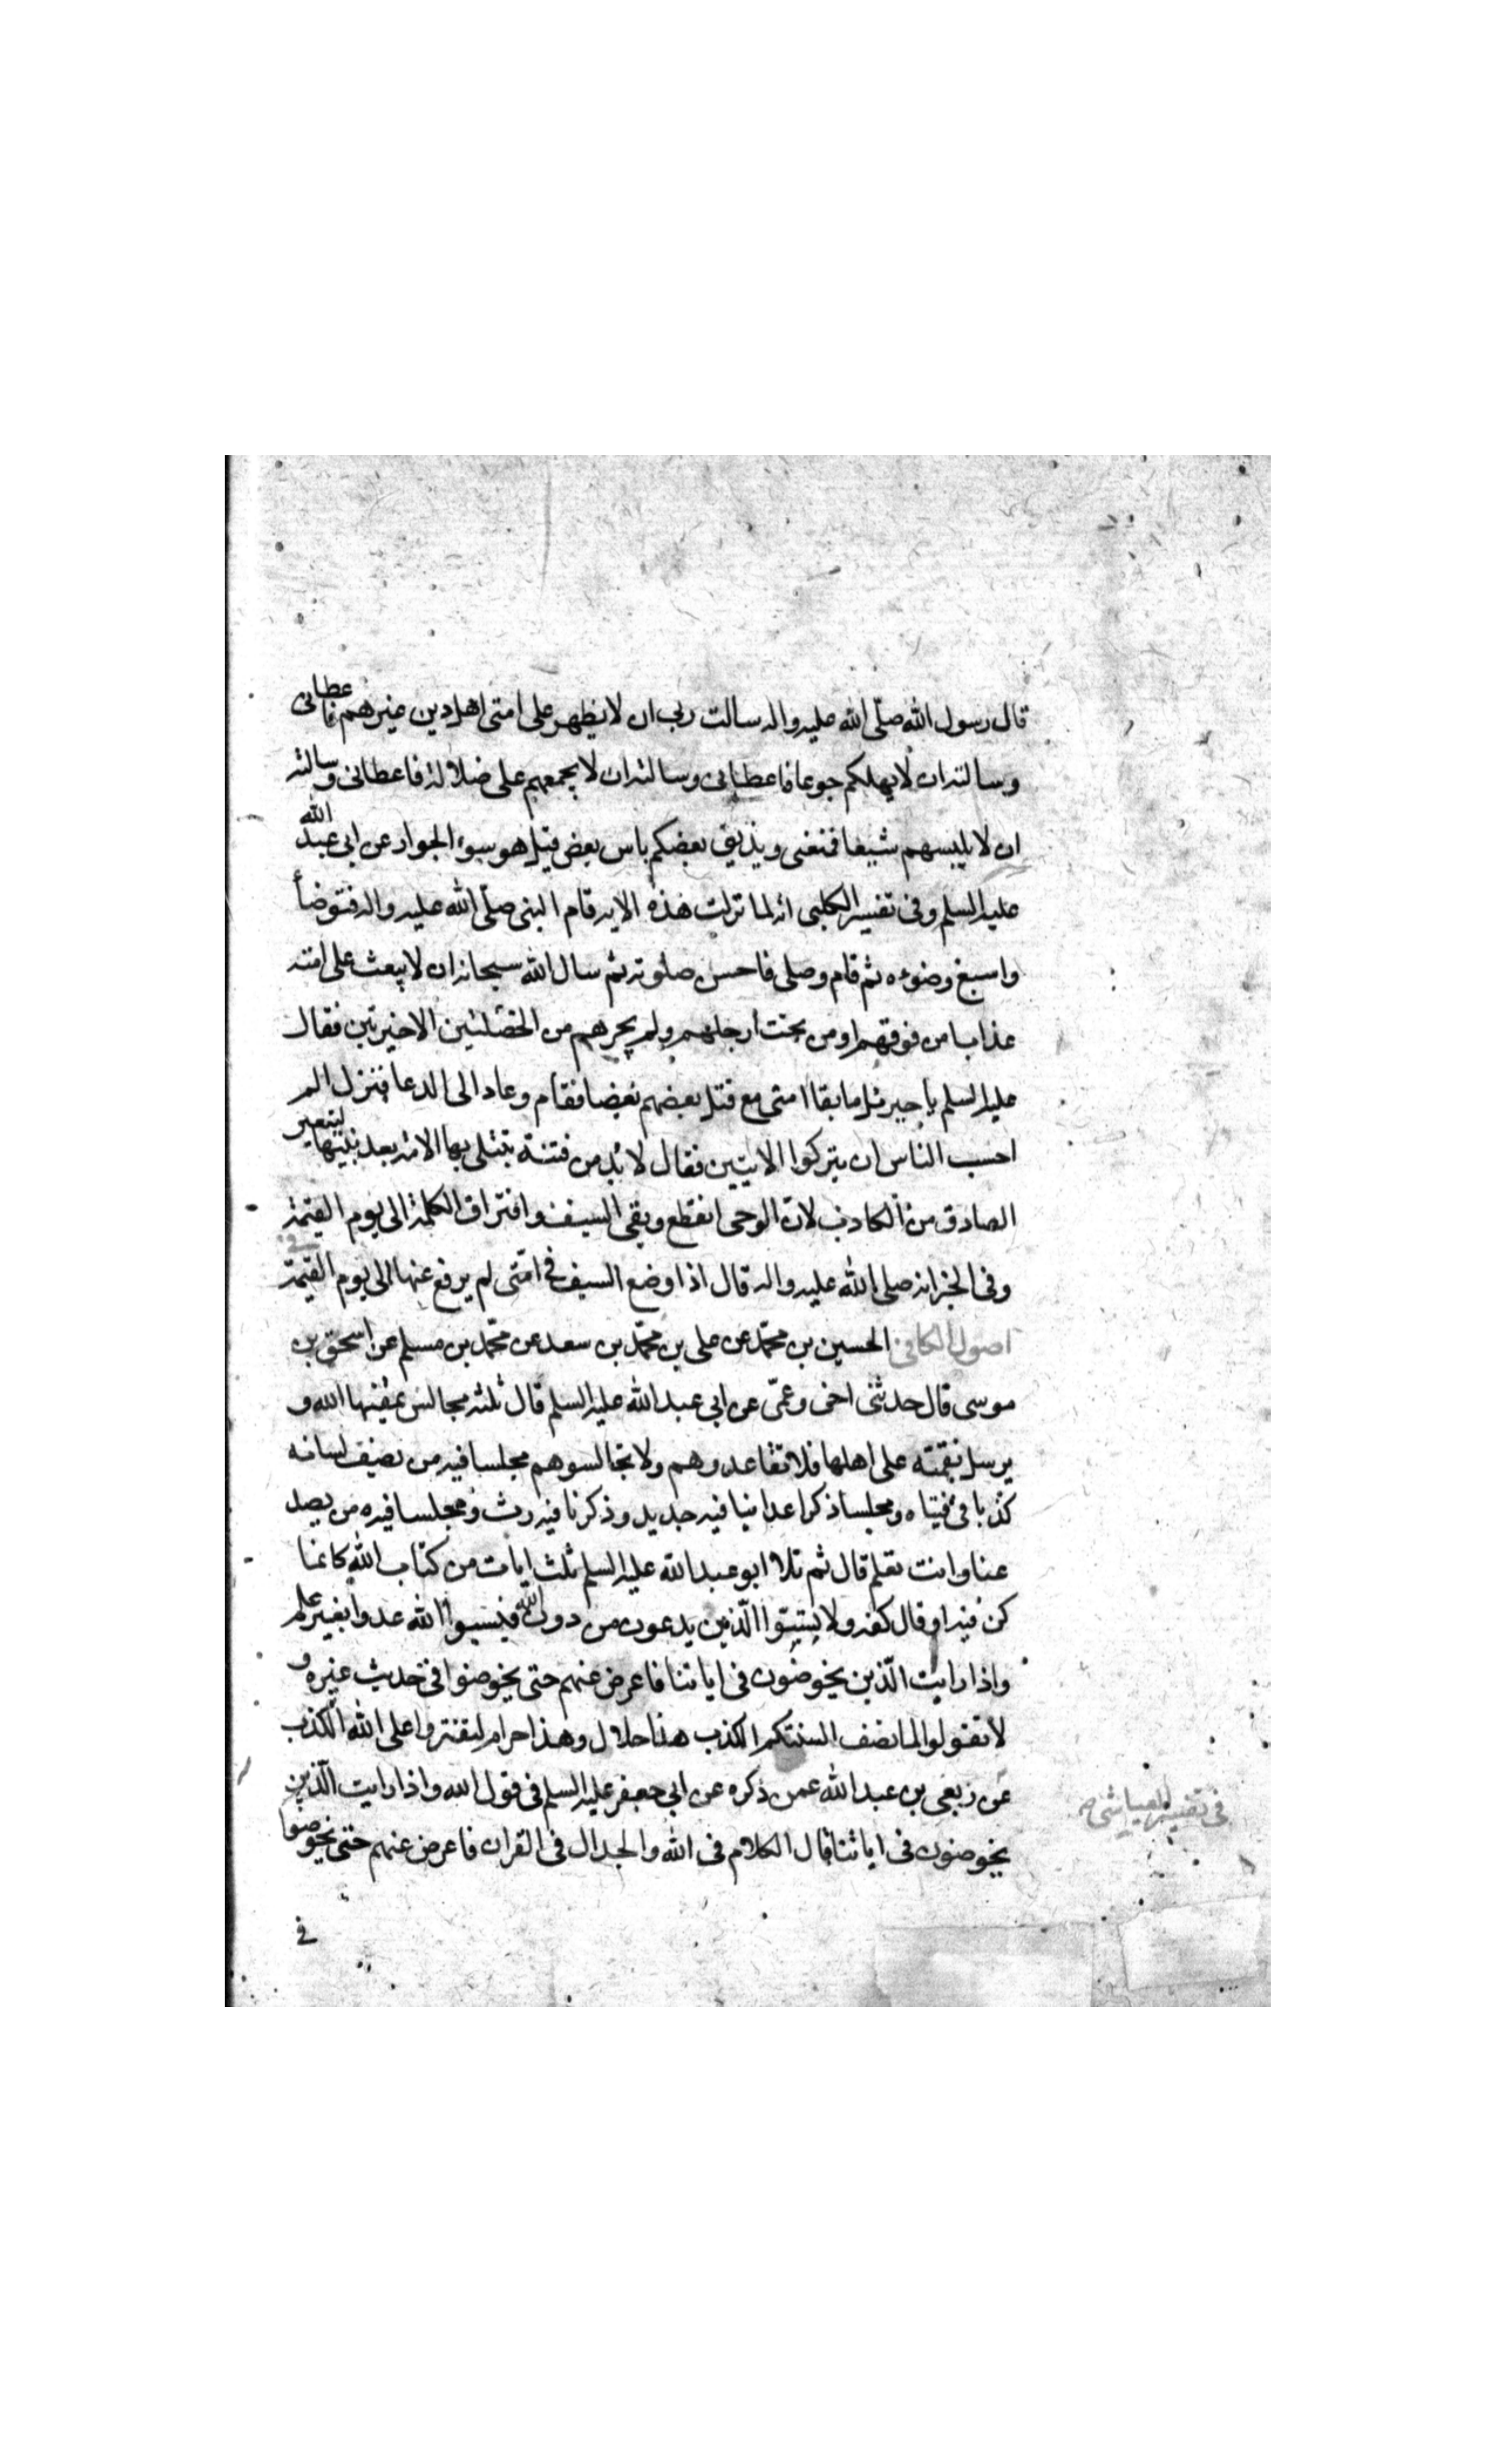 قال رسول الله صلّى الله عليه واله سالت ربى ان لا يظهر على امتى اهل دين غيرهم فاعطانى
وسالته ان لا يهلكم جوعا فاعطانى وسالته ان لا يجمعهم على ضلالة فاعطانى وسالته
ان لا يلبسهم شيعا فمنعنى ويذيق بعضكم باس بعض قيل هو سوء الجوار عن ابى عبد الله
عليه السلم وفى تفسير الكلبى انه لما نزلت هذه الايه قام النبى صلّى الله عليه واله فتوضأ
واسبغ وضوءه ثم قام وصلى فاحسن صلوته ثم سال الله سبحانه ان لا يبعث على امته
عذابا من فوقهم او من تحت ارجلهم ولم يجرهم من الخصلتين الاخيرتين فقال
عليه السلم يا جبرئيل ما بقا امتى مع قتل بعضهم بعضا فقام وعاد الى الدعا فنزل الم
احسب الناس ان يتركوا الايتين فقال لا بد من فتنة تبتلى بها الامة بعد نبيها ليتعير
الصادق من الكاذب لان الوحى انقطع وبقى السيف وافتراق الكلمة الى يوم القيمة
وفى الخبر انه صلى الله عليه واله قال اذا وضع السيف فى امتى لم يرفع عنها الى يوم القيمة
اصول الكافى الحسين بن محمّد عن على بن محمّد بن سعد عن محمّد بن مسلم عن اسحق بن
موسى قال حدثنى اخى وعمّى عن ابى عبد الله عليه السلم قال ثلثه مجالس يمقتها الله و
يرسل نقمته على اهلها فلا تقاعدوهم ولا تجالسوهم مجلسا فيه من يصف لسانه
كذبا فى فتياه ومجلسا ذكر اعدائنا فيه جديد وذكرنا فيه رث ومجلسا فيه من يصد
عنا وانت تعلم قال ثم تلا ابو عبد الله عليه السلم ثلث ايات من كتاب الله كانما
كن فيه او قال كفه ولا تسبّوا الّذين يدعون من دون الله فيسبوا الله عدوا بغير علم
واذا رايت الّذين يخوضون فى اياتنا فاعرض عنهم حتى يخوضوا فى حديث غيره و
لا تقولوا لما تصف السنتكم الكذب هذا حلال وهذا حرام لتفتروا على الله الكذب
فى تفسير العياشى
عن ربعى بن عبد الله عمن ذكره عن ابى جعفر عليه السلم فى قول الله واذا رايت الّذين
يخوضون فى اياتنا قال الكلام فى الله والجدال فى القران فاعرض عنهم حتى يخوضوا
فى